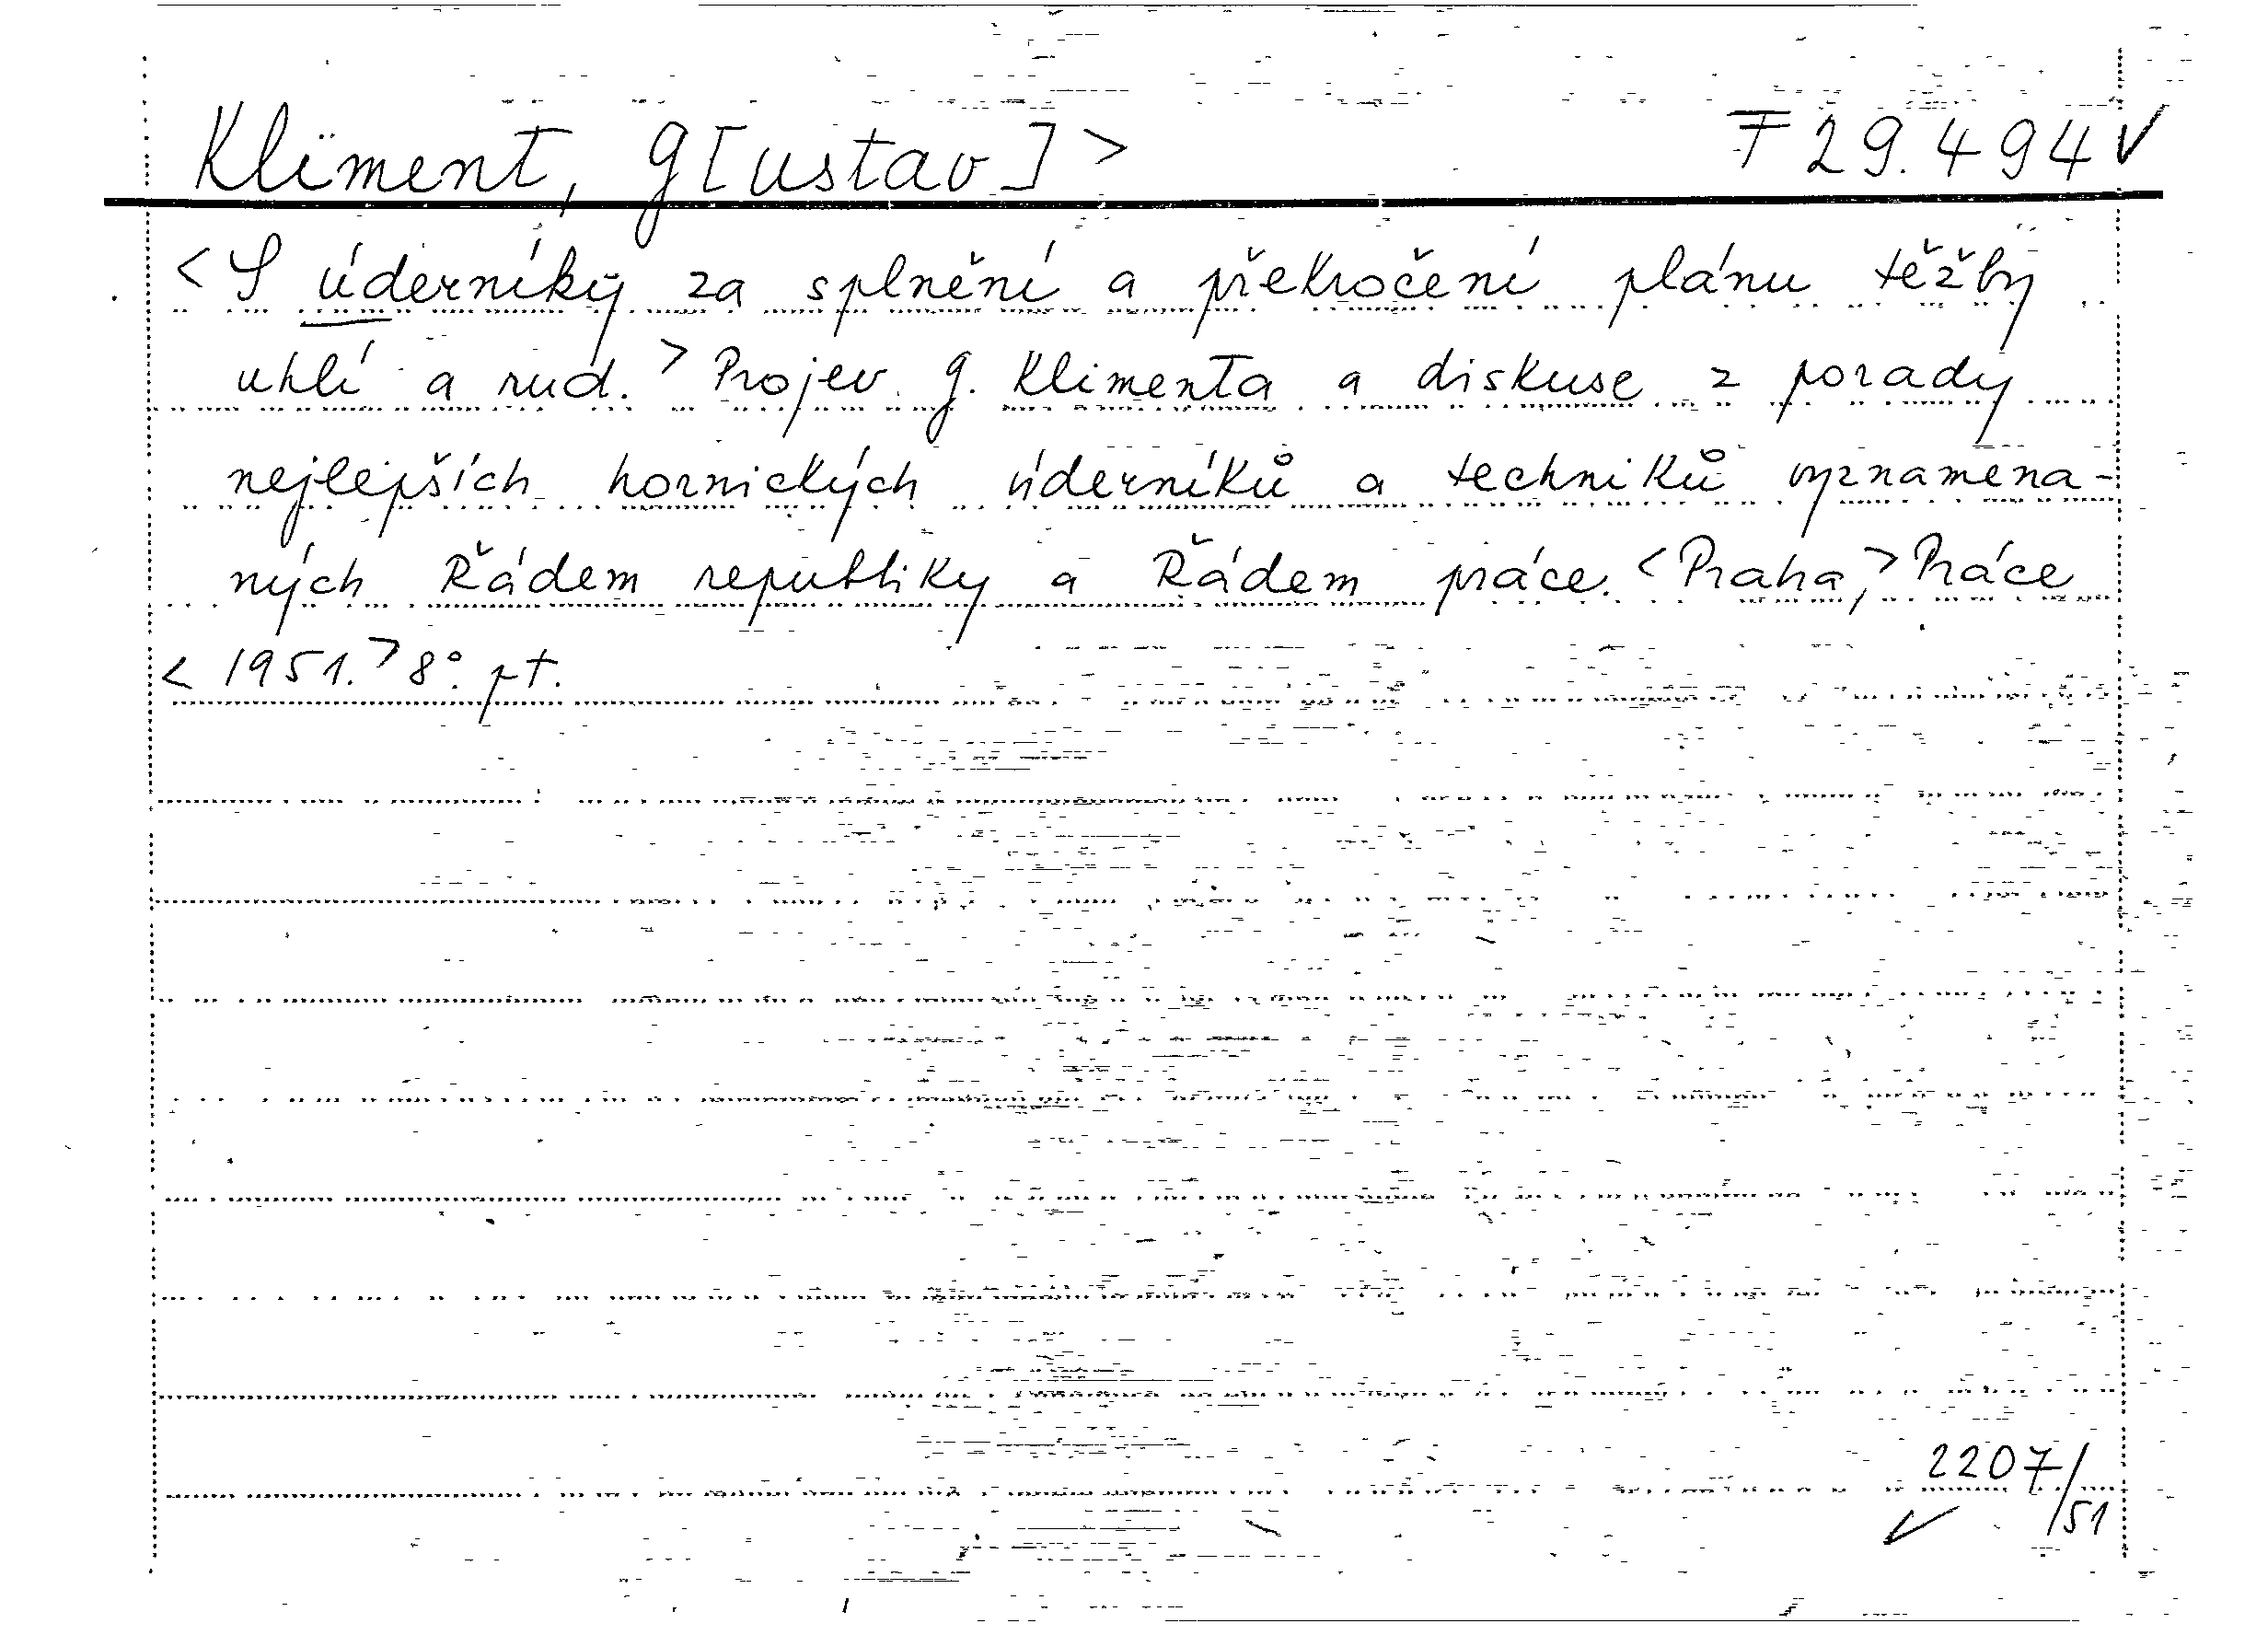 Kliment, G[ustav]> F 29.494 ✓
<S úderníky za splnění a překročení plánu těžby
uhlí a rud.> Projev G. Klimenta a diskuse z porady
nejlepších hornických úderníků a techniků vyznamena-
ných Řádem republiky a Řádem práce. <Praha,> Práce
<1951.> 8°. pt.
2207/51
✓